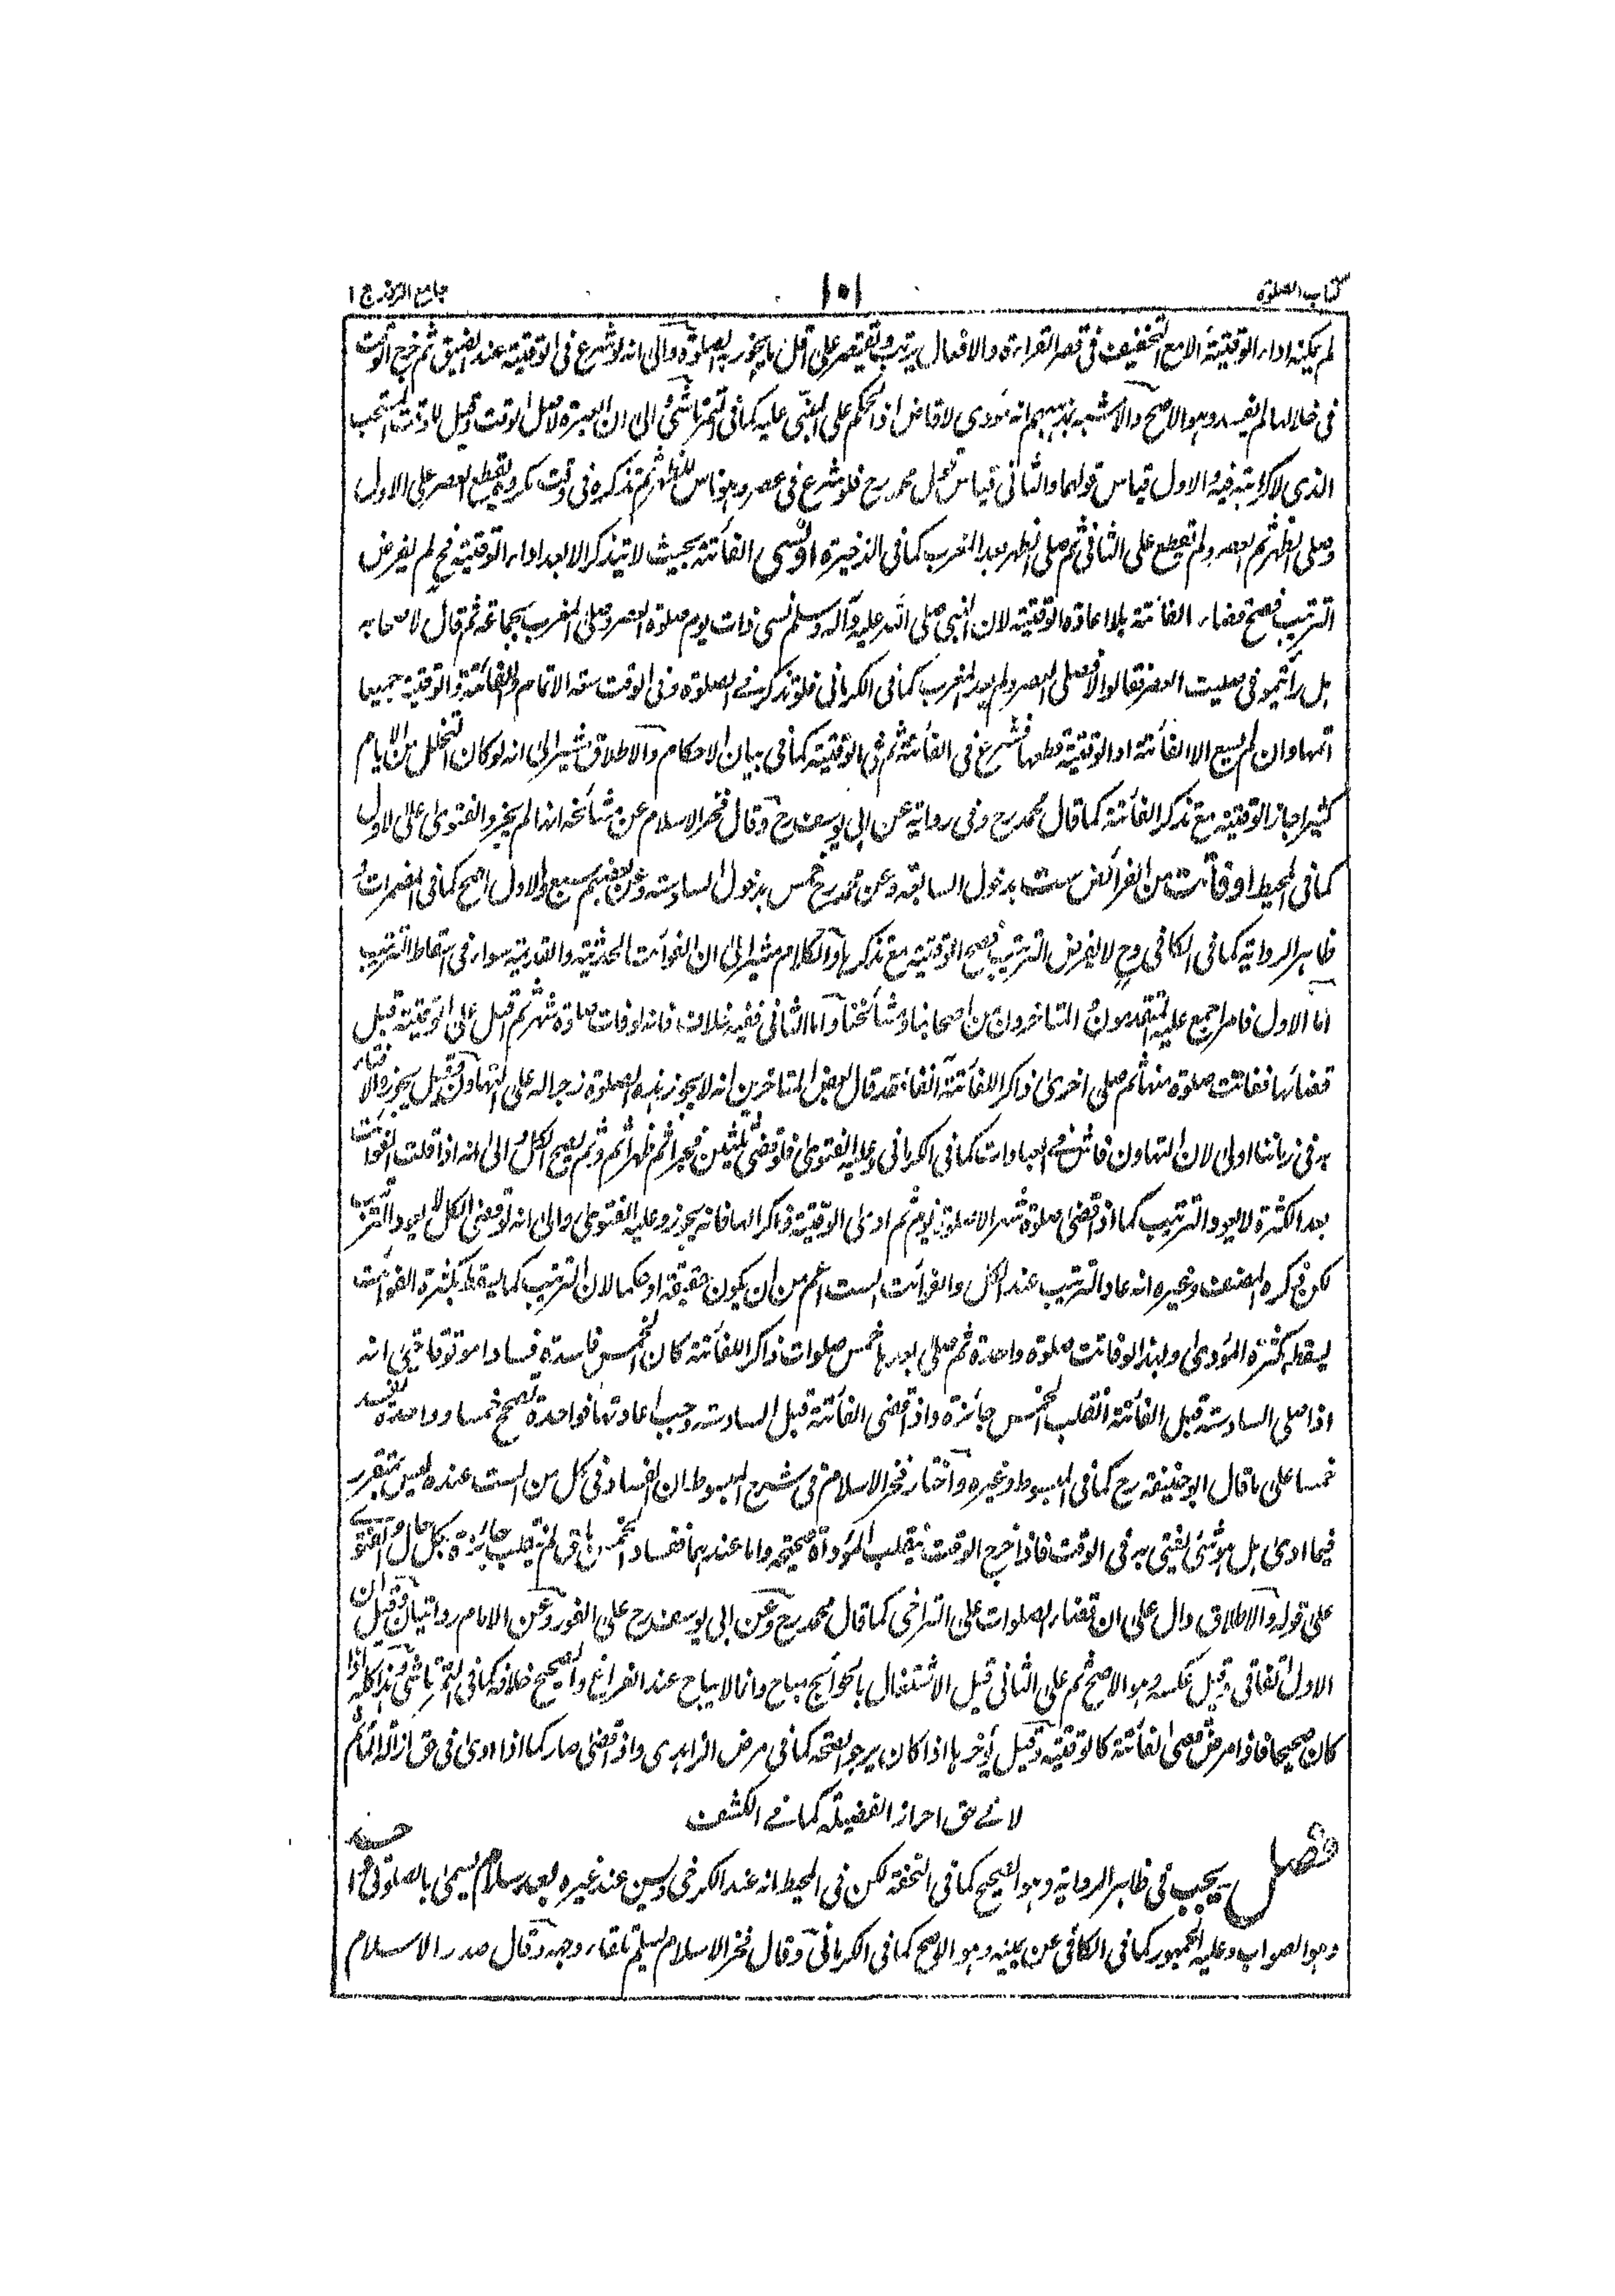 كتاب الصلوة
١٠١
جامع الرموز ج ١
لم يكنه اداء الوقتية الا مع التخفيف فى قصر القراءة والافعال يرتب ويقتصر على اقل ما يجوز به الصلوة والى انه لو شرع فى الوقتية عند الضيق ثم خرج الوقت
فى خلالها لم يفسد وهو الاصح والاشبه بمذهبهم انه مؤدى لا قاض اذ الحكم على المبنى عليه كما فى التمرتاشى والى ان العبرة لاصل الوقت وقيل للوقت المستحب
الذى لا كراهته فيه والاول قياس قولهما والثانى قياس قول محمد رح فلو شرع فى عصر وهو ناس للظهر ثم تذكره فى وقت مكروه يقطع العصر على الاول
وصلى الظهر ثم العصر ولم يقطع على الثانى ثم صلى الظهر بعد المغرب كما فى الذخيرة او نسى الفائتة بحيث لا يتذكر الا بعد اداء الوقتية فح لم يفرض
الترتيب فصح قضاء الفائتة بلا اعادة الوقتية لان النبى صلى الله عليه وآله وسلم نسى ذات يوم صلوة العصر وصلى المغرب بجماعة ثم قال لاصحابه
هل رأيتمونى صليت العصر فقالوا لا فصلى العصر ولم يعد المغرب كما فى الكرمانى فلو تذكر فى الصلوة وفى الوقت سعة الاتمام والفائتة والوقتية جميعا
اتمها وان لم يسع الا الفائتة او الوقتية قطعها فشرع فى الفائتة ثم فى الوقتية كما فى بيان الاحكام والاطلاق مشير الى انه لو كان التخلل من الايام
كثيرا جاز الوقتية مع تذكر الفائتة كما قال محمد رح وفى رواية عن ابى يوسف رح وقال فخر الاسلام عن مشائخه انها لم يجز والفتوى على الاول
كما فى المحيط او فاتت من الفرائض ست بدخول السابعة وعن محمد رح خمس بدخول السادسة وعن بعضهم سبع والاول اصح كما فى المضمرات
ظاهر الرواية كما فى الكافى وح لا يفرض الترتيب فصح الوقتية مع تذكرها والكلام مشير الى ان الفوائت الحديثة والقديمة سواء فى اسقاط الترتيب
اما الاول فامر اجمع عليه المتقدمون والمتاخرون من اصحابنا ومشائخنا واما الثانى ففيه خلاف فانه لو فات صلوة شهر ثم اقبل على الوقتية قبل
قضائها ففاتت صلوة منها ثم صلى اخرى ذاكرا للفائتة آنفا فقد قال بعض المتاخرين انه لا يجوز هذه الصلوة زجرا له على التهاون وقيل يجوز والافتاء
به فى زماننا اولى لان التهاون فاش فى العبادات كما فى الكرمانى وعليه الفتوى فلو قضى ثلثين فجرا ثم ظهرا ثم وثم يصح الكل والى انه اذا قلت الفوائت
بعد الكثرة لا يعود الترتيب كما اذا قضى صلوة شهر الا صلوة يوم ثم ادى الوقتية ذاكرا لها فانه يجوز وعليه الفتوى والى انه لو قضى الكل لا يعود الترتيب
لكن ذكره المصنف وغيره انه عاد الترتيب عند الكل والفوائت الست اعم من ان يكون حقيقة او حكما لان الترتيب كما يسقط بكثرة الفوائت
يسقط بكثرة المؤدى ولهذا لو فاتت صلوة واحدة ثم صلى بعدها خمس صلوات ذاكرا للفائتة كان الخمس فاسدة فسادا موقوفا حتى انه
اذا صلى السادسة قبل الفائتة انقلب الخمس جائزة واذا قضى الفائتة قبل السادسة وجب اعادتها فواحدة تصحح خمسا وواحدة تفسد
خمسا على ما قال ابو حنيفة رح كما فى المبسوط وغيره واختار فخر الاسلام فى شرح المبسوط ان الفساد فى كل من الست عنده ليس بمتقرر
فيما ادى بل هو شئ يفتى به فى الوقت فاذا خرج الوقت ينقلب المؤداة صحيحة واما عندهما ففساد الخمس باق لم ينقلب جائزة بكل حال والفتوى
على قوله والاطلاق دال على ان قضاء الصلوات على التراخى كما قال محمد رح وعن ابى يوسف رح على الفور وعن الامام روايتان وقيل ان
الاول اتفاقى وقيل عكسه وهو الاصح ثم على الثانى قيل الاشتغال بالحوائج مباح وانما لا يباح عند الفراغ والصحيح خلافه كما فى التمرتاشى وهذا كله اذا
كان صحيحا فاذا مرض قضى الفائتة كالوقتية وقيل يؤخرها اذا كان يرجو الصحة كما فى مرض الزاهدى واذا قضى صار كما اذا ادى فى حق ازالة المأثم
لا فى حق احراز الفضيلة كما فى الكشف
فصل يجب فى ظاهر الرواية وهو الصحيح كما فى التحفة لكن فى المحيط انه عند الكرخى وسن عند غيره بعد سلام يسمى بالصلوتى
وهو الصواب وعليه الجمهور كما فى الكافى عن يمينه وهو الاصح كما فى الكرمانى وقال فخر الاسلام يسلم تلقاء وجهه وقال صدر الاسلام